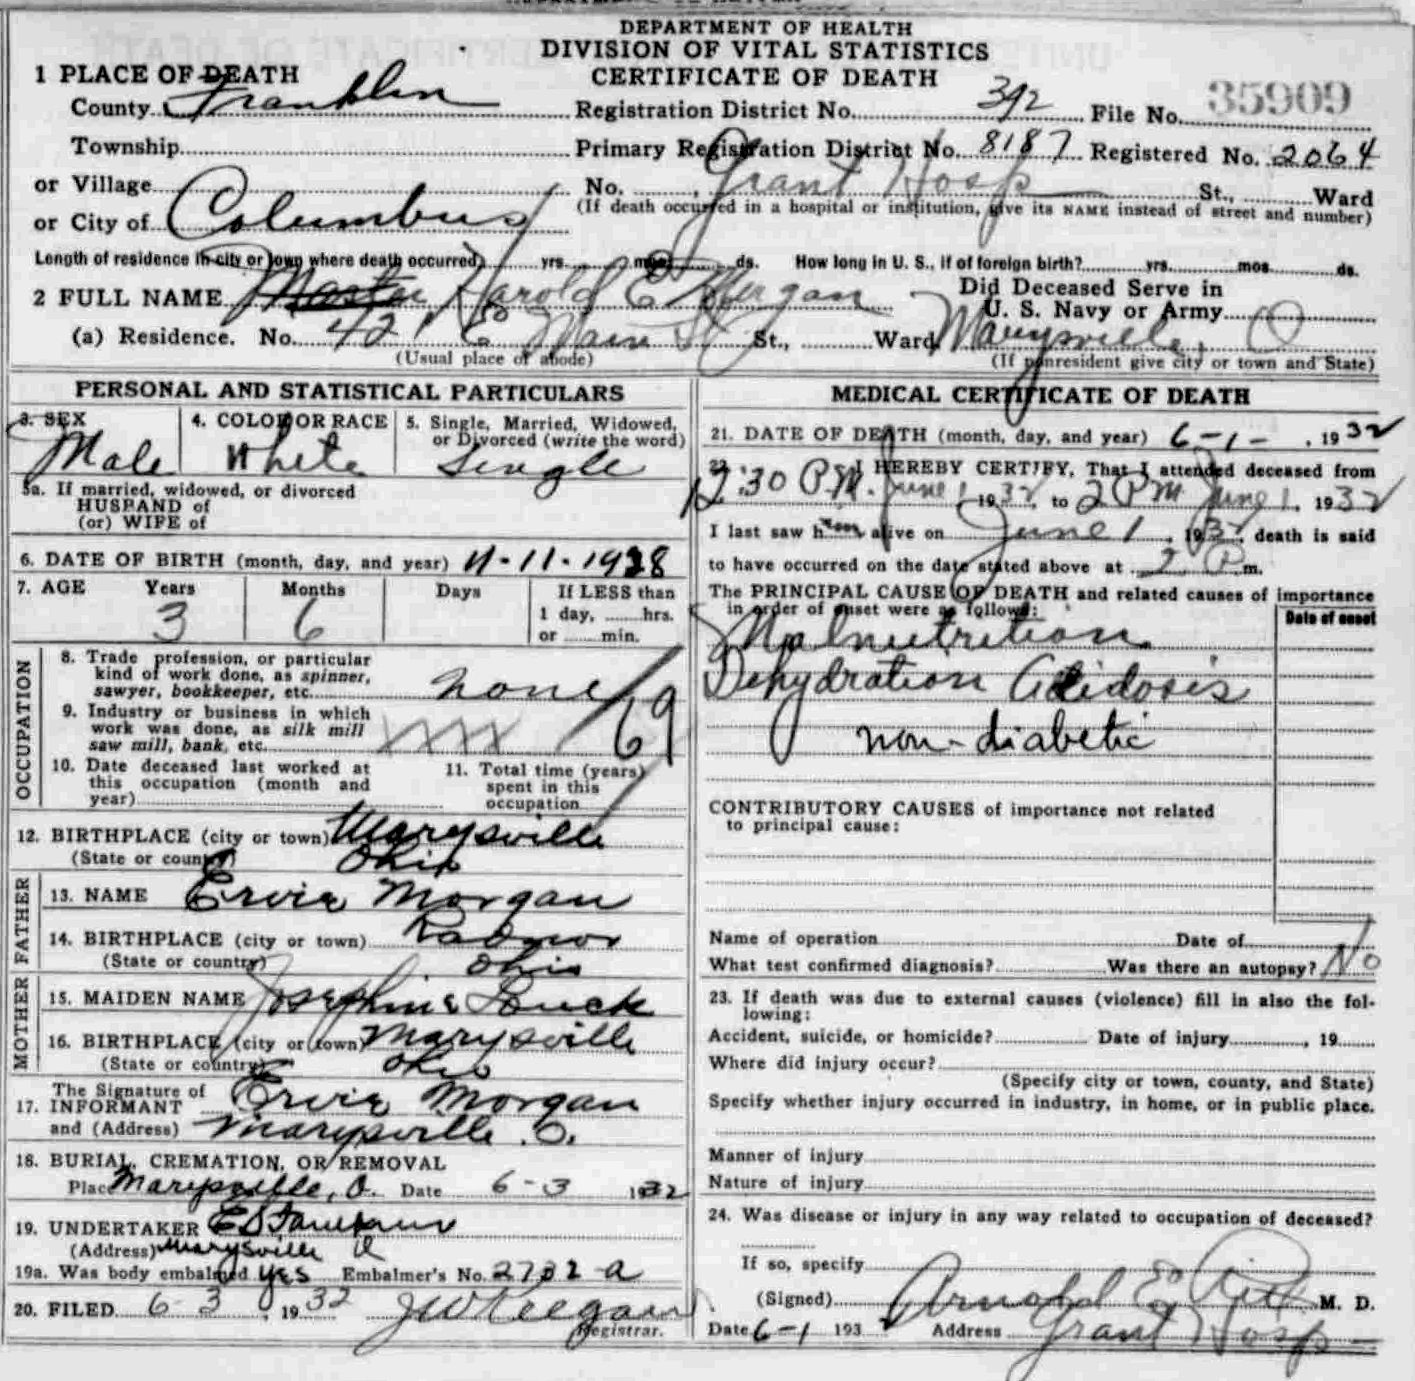 DEPARTMENT OF HEALTH
DIVISION OF VITAL STATISTICS
CERTIFICATE OF DEATH
1 PLACE OF DEATH
County Franklin Registration District No. 392 File No. 35909
Township Primary Registration District No. 8187 Registered No. 2064
or Village No. Grant Hosp St., Ward
or City of Columbus (If death occurred in a hospital or institution, give its NAME instead of street and number)
Length of residence in city or town where death occurred yrs. mos. ds. How long in U. S., if of foreign birth? yrs. mos. ds.
2 FULL NAME Master Harold E Morgan Did Deceased Serve in U. S. Navy or Army
(a) Residence. No. 421 E Main St St., Ward Marysville, O
(Usual place of abode) (If nonresident give city or town and State)
PERSONAL AND STATISTICAL PARTICULARS
3. SEX Male 4. COLOR OR RACE White 5. Single, Married, Widowed, or Divorced (write the word) Single
5a. If married, widowed, or divorced
HUSBAND of
(or) WIFE of
6. DATE OF BIRTH (month, day, and year) 11-11-1928
7. AGE Years 3 Months 6 Days If LESS than 1 day, hrs. or min.
OCCUPATION
8. Trade profession, or particular kind of work done, as spinner, sawyer, bookkeeper, etc. none
9. Industry or business in which work was done, as silk mill saw mill, bank, etc.
69
10. Date deceased last worked at this occupation (month and year)
11. Total time (years) spent in this occupation
12. BIRTHPLACE (city or town) Marysville
(State or country) Ohio
FATHER
13. NAME Ervie Morgan
14. BIRTHPLACE (city or town) Radnor
(State or country) Ohio
MOTHER
15. MAIDEN NAME Josephine Louck
16. BIRTHPLACE (city or town) Marysville
(State or country) Ohio
17. The Signature of INFORMANT Ervie Morgan
and (Address) Marysville O.
18. BURIAL, CREMATION, OR REMOVAL
Place Marysville, O. Date 6-3 1932
19. UNDERTAKER
(Address) Marysville O
19a. Was body embalmed yes Embalmer's No. 2732-a
20. FILED 6-3 1932 J W Keegan
Registrar.
MEDICAL CERTIFICATE OF DEATH
21. DATE OF DEATH (month, day, and year) 6-1-, 1932
22. I HEREBY CERTIFY, That I attended deceased from
12:30 P.M. June 1 1932 to 2 PM June 1, 1932
I last saw him alive on June 1, 1932 death is said
to have occurred on the date stated above at 2 P m.
The PRINCIPAL CAUSE OF DEATH and related causes of importance
in order of onset were as follows: Date of onset
Malnutrition
Dehydration Acidosis
non-diabetic
CONTRIBUTORY CAUSES of importance not related
to principal cause:
Name of operation Date of
What test confirmed diagnosis? Was there an autopsy? No
23. If death was due to external causes (violence) fill in also the fol-
lowing:
Accident, suicide, or homicide? Date of injury, 19
Where did injury occur?
(Specify city or town, county, and State)
Specify whether injury occurred in industry, in home, or in public place.
Manner of injury
Nature of injury
24. Was disease or injury in any way related to occupation of deceased?
If so, specify
(Signed) Arnold E M. D.
Date 6-1 193 Address Grant Hosp